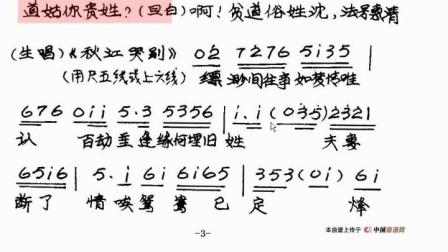 道姑你贵姓？(旦白)啊！贫道俗姓沈，法号慧清
(生唱)《秋江哭别》 02 7276 5i35
(用尺五线或上六线) 缥 渺间往事如梦情难
676 0ii 5.3 5356 | i.i (035) 2321
认 百劫重逢缘何埋旧姓 夫妻
65i6 | 5.i 6i 6i65 | 353 (0i) 6i
断了 情唉鸳鸯已定 烽
-3-
本曲谱上传于 中国曲谱网